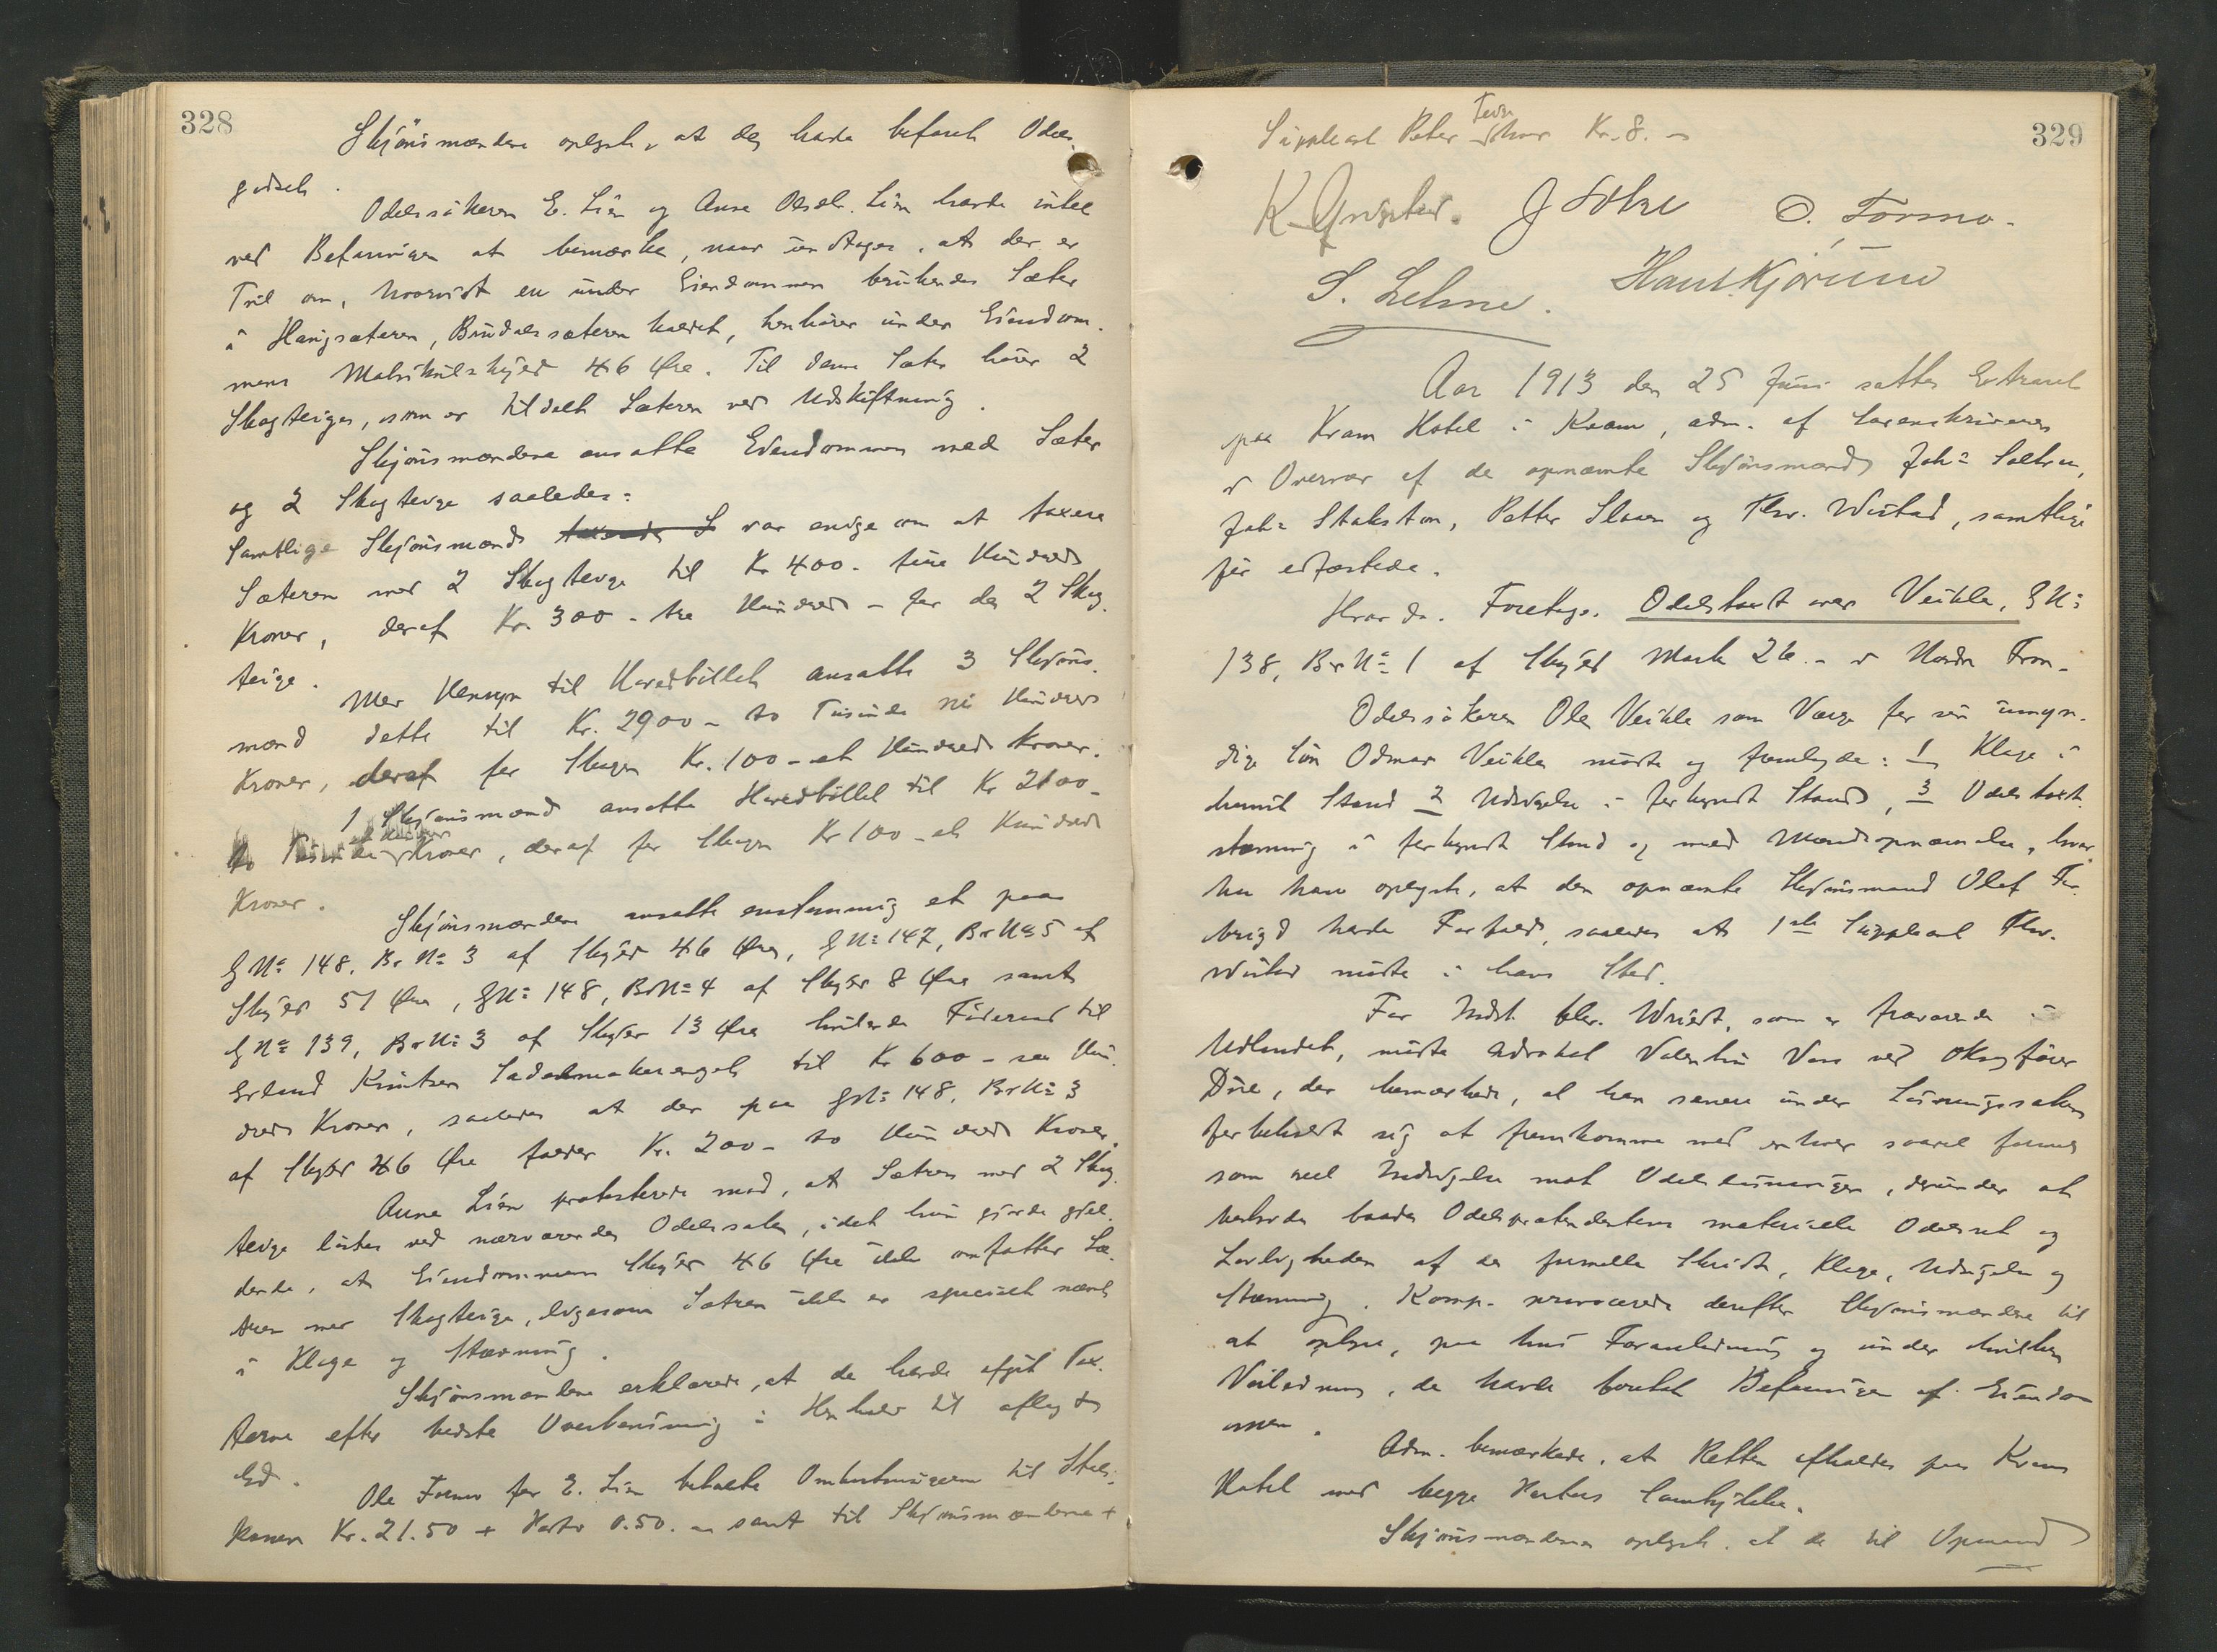 328
Skjønsmændene oplyste, at de havde befaret Odels-
godset.
Odelssøkeren E. Lien og Anne Olsdtr. Lien havde intet
ved Befaringen at bemærke, naar undtages, at der er
Tvil om, hvorvidt en under Eiendommen brukendes Sæter
i Haugsæteren, Brudalssæteren kaldet, henhører under Eiendom-
mens Matrikulskyld 46 Øre. Til denne Sæter hører 2
Skogteiger, som er tildelt Sæteren ved Udskiftning.
Skjønsmændene ansatte Eiendommen med Sæter
og 2 Skogteige saaledes:
Samtlige Skjønsmænd var enige om at taxere
Sæteren med 2 Skogteige til Kr 400 - fire Hundrede
Kroner, deraf Kr. 300 - tre Hundrede - for de 2 Skog-
teige.
Med Hensyn til Hovedbøllet ansatte 3 Skjøns-
mænd dette til Kr. 2900 - to Tusinde ni Hundrede
Kroner, deraf for Skogen Kr. 100 - et Hundrede Kroner.
1 Skjønsmand ansatte Hovedbøllet til Kr 2100 -
to Tusinde Kroner, deraf for Skogen Kr 100 - et Hundrede
Kroner.
Skjønsmændene ansatte enstemmig et paa
G Nº 148, Br Nº 3 af Skyld 46 Øre, G Nº 147, Br Nº 5 af
Skyld 51 Øre, G Nº 148, Br Nº 4 af Skyld 8 Øre samt
G Nº 139, Br Nº 3 af Skyld 13 Øre hvilende Føderaad til
Erland Knutsen Sadelmakerenget til Kr 600 - sex Hun-
drede Kroner, saaledes at der paa G Nº 148, Br Nº 3
af Skyld 46 Øre falder Kr. 200 - to Hundrede Kroner.
Anne Lien protesterede mod, at Sætren med 2 Skog-
teige løses ved nærværende Odelssak, idet hun gjorde gjæl-
dende, at Eiendommens Skyld 46 Øre ikke omfatter Sæ-
tren med Skogteige, ligesom Sætren ikke er specielt nævnt
i Klage og Stævning.
Skjønsmændene erklærede, at de havde afgit Tax-
terne efter bedste Overbevisning i Henhold til aflagte
Ed.
Ole Formo for E. Lien betalte Omkostningerne til Stats-
kassen Kr. 21.50 + Porto 0.50. samt til Skjønsmændene +
329
Suppleant Peter Kr. 8. -
O. Formo.
Hans Kjørum
Aar 1913 den 25 Juni sattes Extraret
paa Kvam Hotel i Kvam, adm. af Sorenskriveren
i Overvær af de opnævnte Skjønsmænd Johs
Johs Stokstom, Petter Sloen og Thv. Wistad, samtlige
før edfæstede.
Hvor da. Foretoges. Odelstaxt over Veikle, G Nº
138, Br Nº 1 af Skyld Mark 26. - i Nordre Fron.
Odelssøkeren Ole Veikle som Værge for sin umyn-
dige Søn Odmar Veikle mødte og fremlagde: 1 Klage i
bemil. Stand 2 Udvigelse i forkyndt Stand, 3 Odelstaxt-
stævning i forkyndt Stand og med Mændsopnævnelse, hvor-
hos han oplyste, at den opnævnte Skjønsmand Olef
havde Forfald, saaledes at 1ste Suppleant Thv.
Wistad møtte i hans Sted.
For Indst. som er fraværende i
Utlandet, møtte Advokat Valentin Voss ved Oksgfører
Due, der bemærkede, at han senere under Løsningssaken
forbeholdt sig at fremkomme med enhver saavel formel
som reel Indsigelse mot Odelsløsningen, derunder at
benegte baade Odelspretendentens materielle Odelsret og
Lovligheden af de formelle Skridt, Klage, Udsigelse og
Stævning. Komp. provocerede derefter Skjønsmændene til
at oplyse, paa hvis Foranledning og under hvilken
Veiledning, de havde foretat Befaringen af Eiendom-
men.
Adm. bemærkede, at Retten afholdes paa Kvam
Hotel med begge Parters Samtykke.
Skjønsmændene oplyste, at de til Opmand